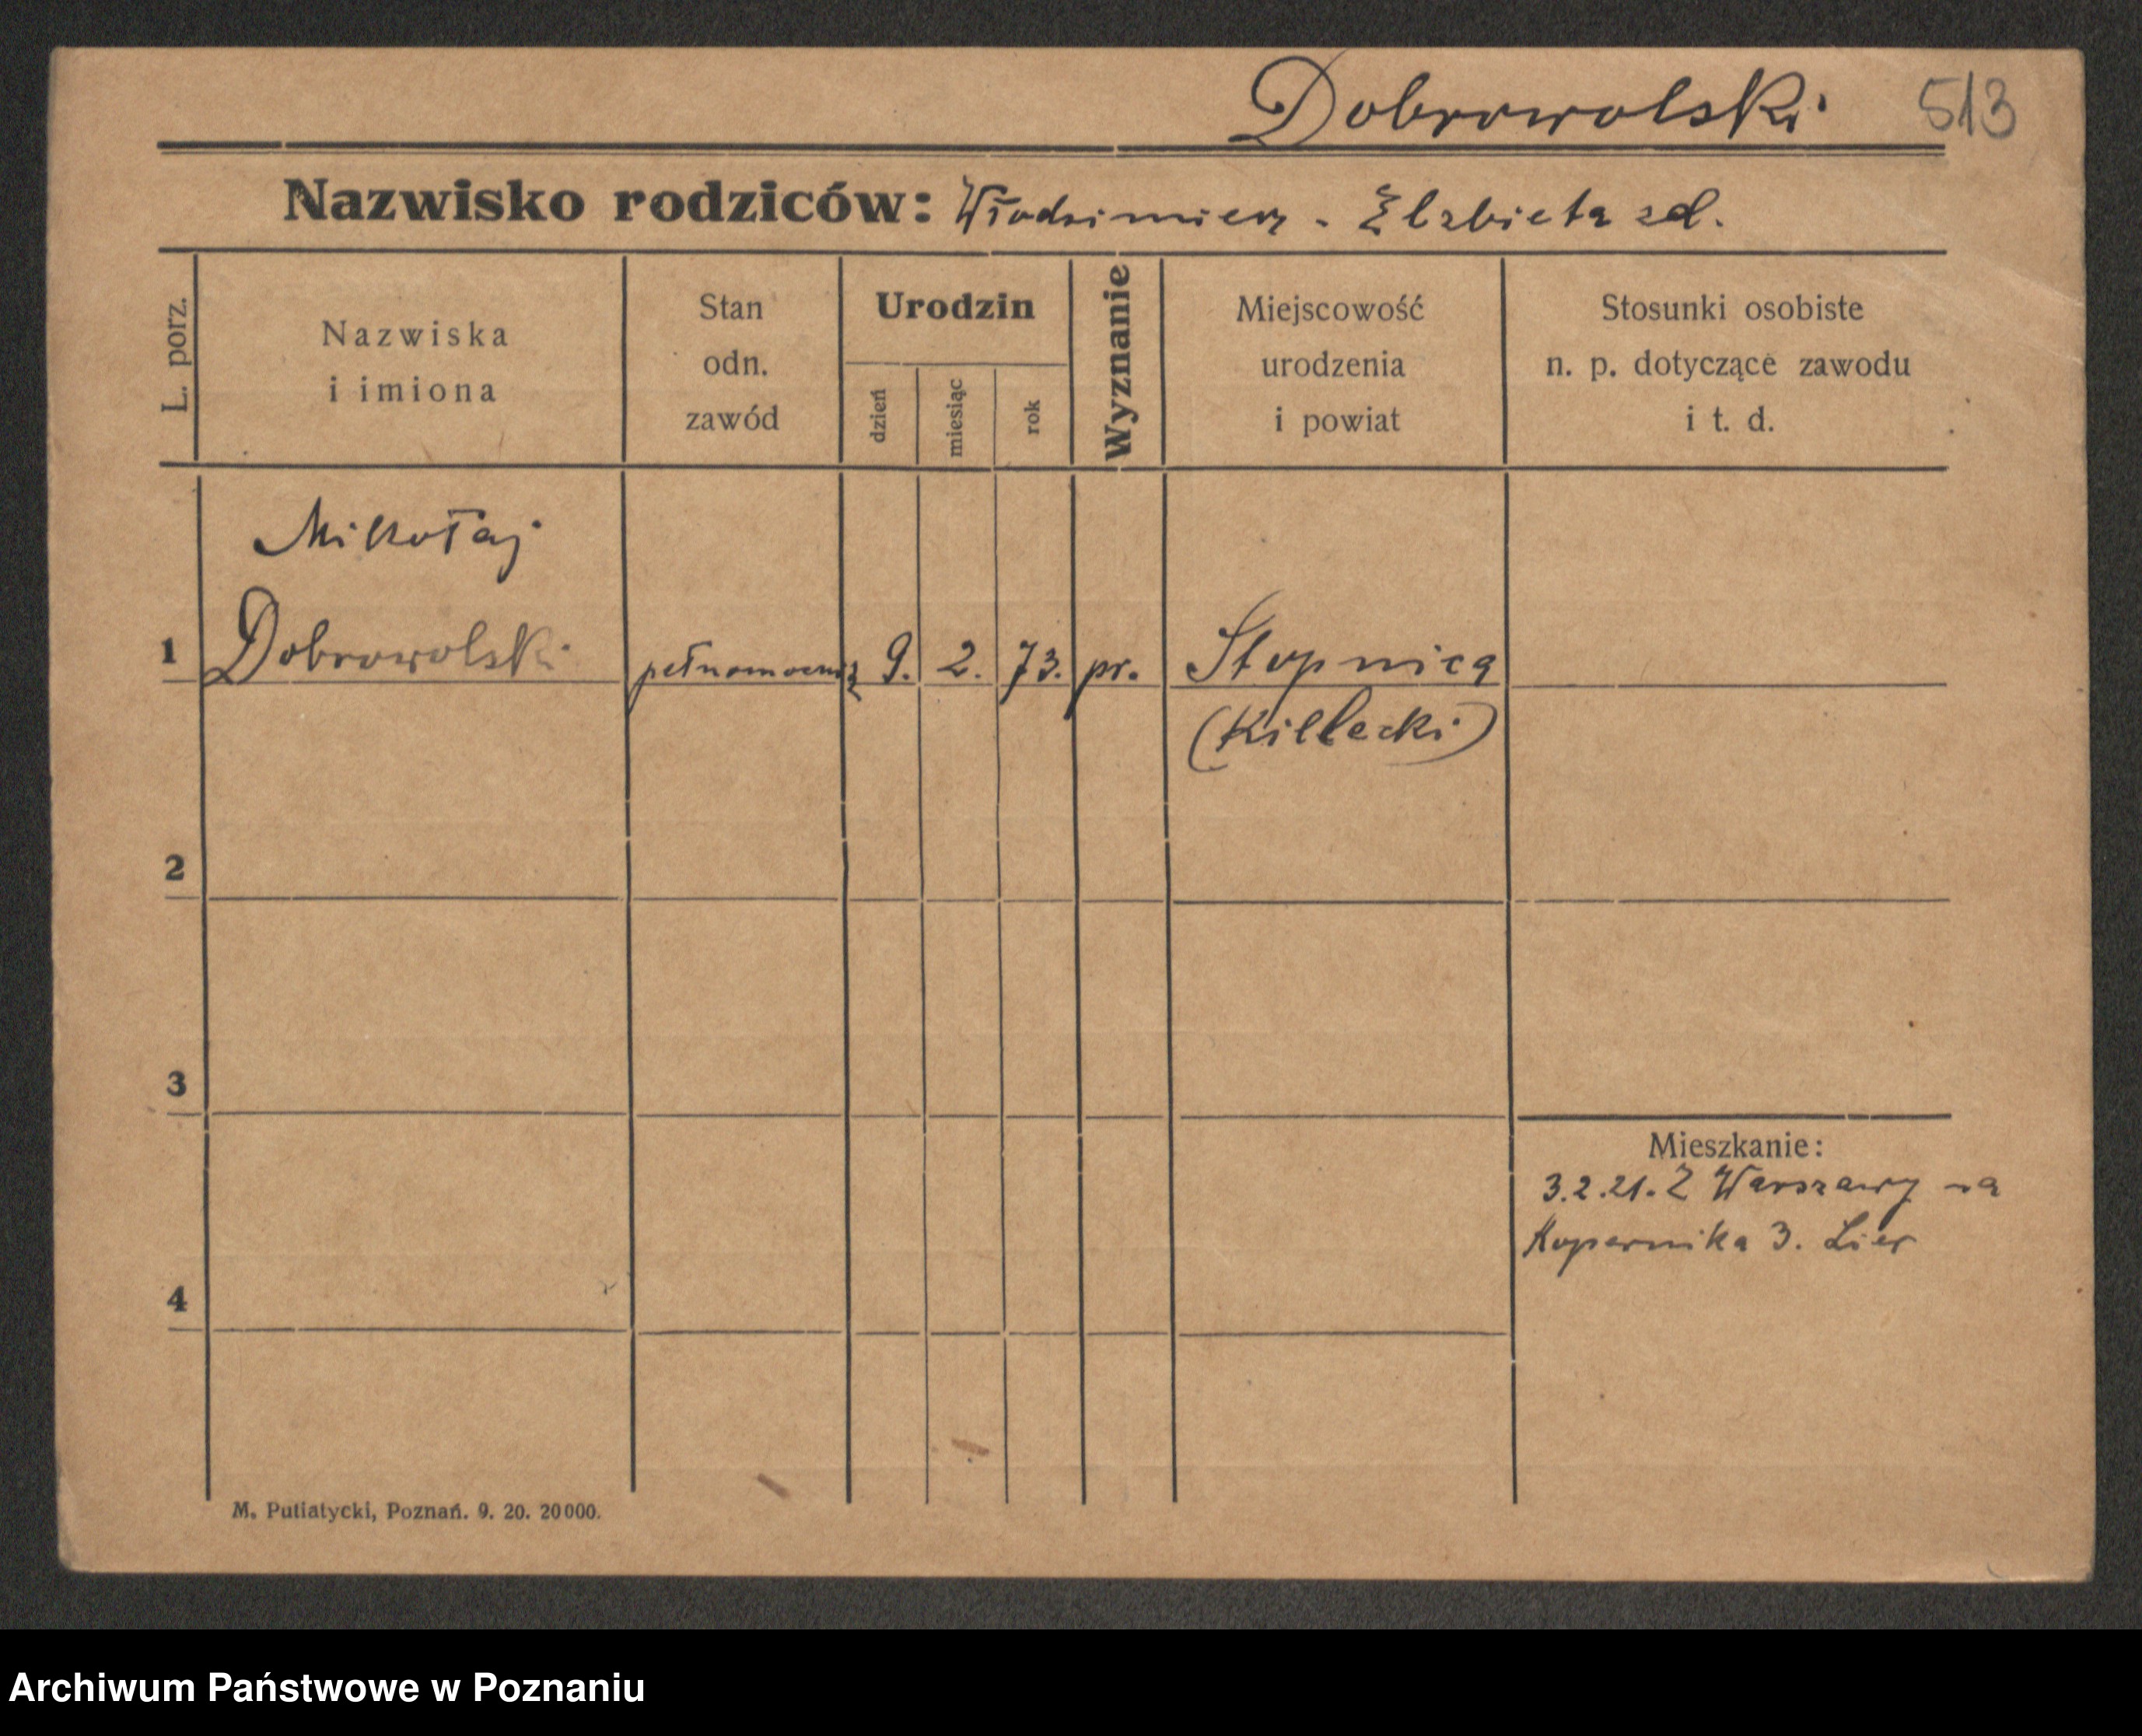 Dobrowolski 513
Nazwisko rodziców: Włodzimierz - Elzbieta zd.
L. porz.
Nazwiska
i imiona
Stan
odn.
zawód
Urodzin
dzień
miesiąc
rok
Wyznanie
Miejscowość
urodzenia
i powiat
Stosunki osobiste
n. p. dotyczące zawodu
i t. d.
Mikołaj
1 Dobrowolski 9. 2. 73. pr. Stopnica
(Killecki)
2
3
Mieszkanie:
3.2.21. Z Warszawy na
Kopernika 3.
4
M. Putiatycki, Poznań. 9. 20. 20000.
Archiwum Państwowe w Poznaniu